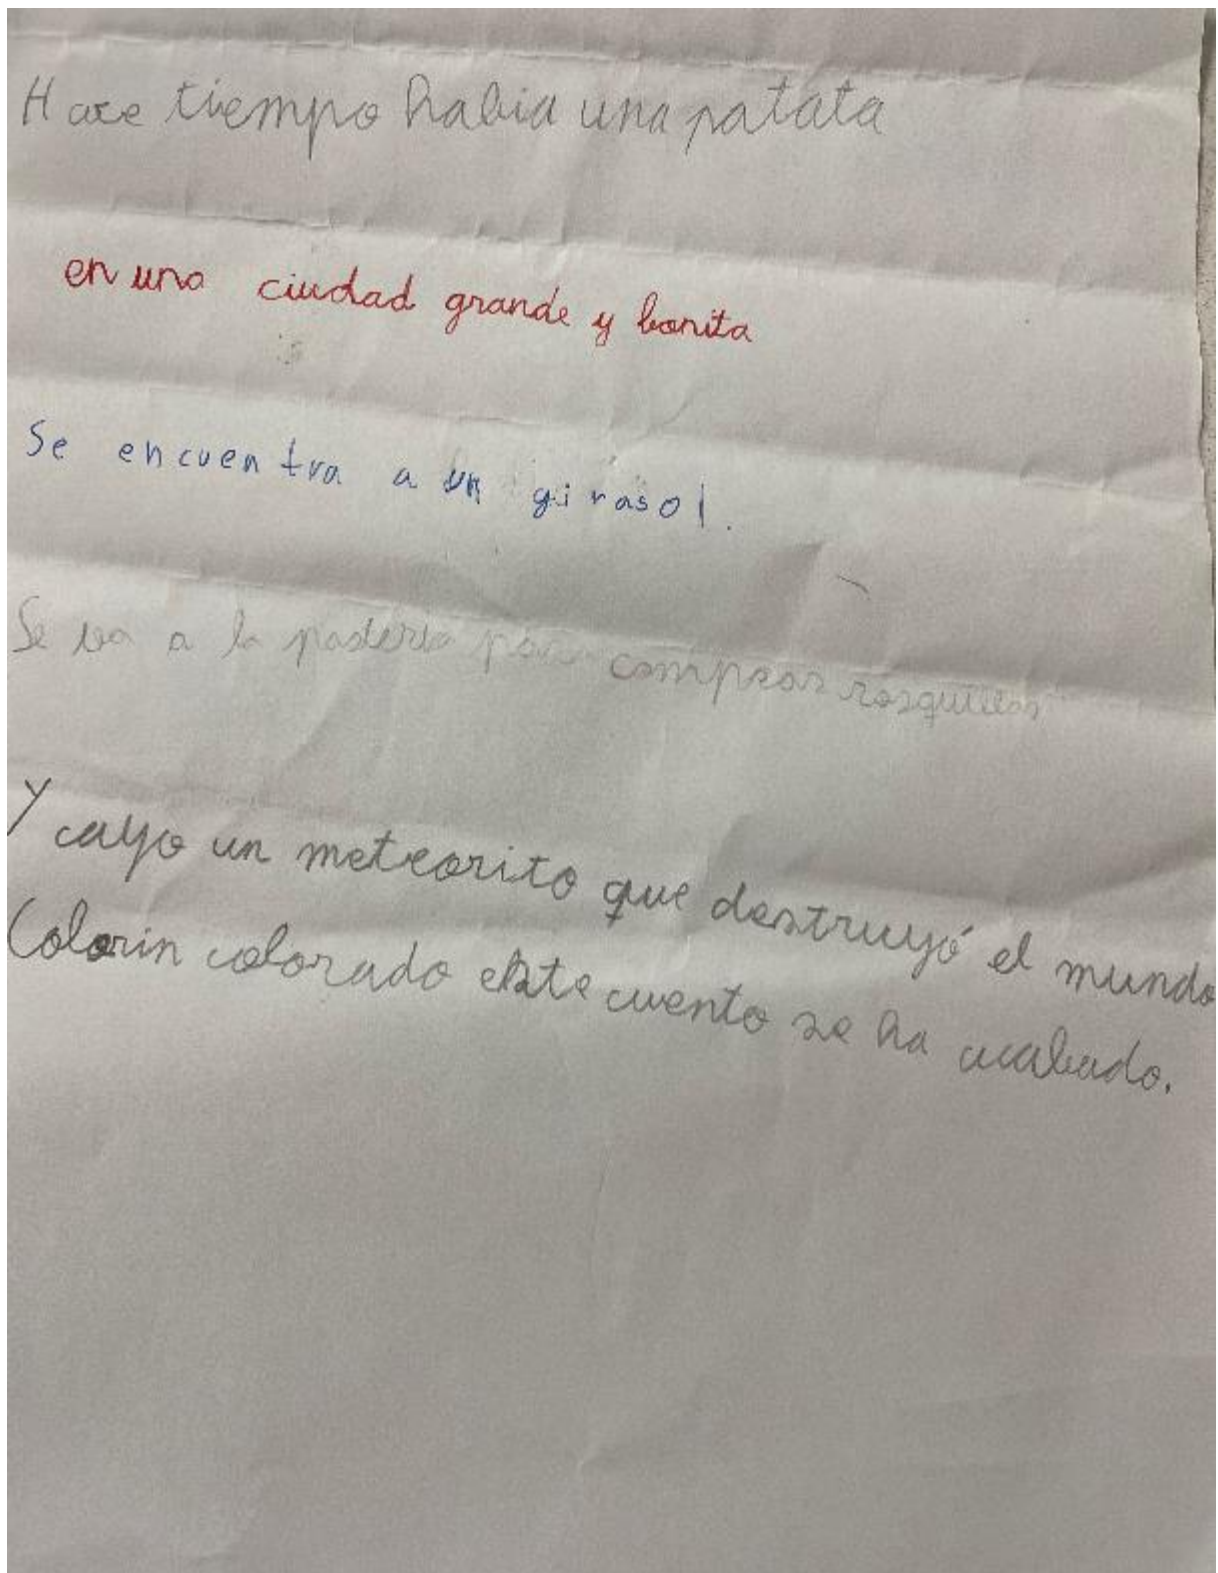 Hace tiempo habia una patata
en una ciudad grande y bonita
Se encuentra a un girasol.
Se va a la pasteria para comprar rosquillas
Y cayo un meteorito que destruyó el mundo
Colorin colorado este cuento se ha acabado.